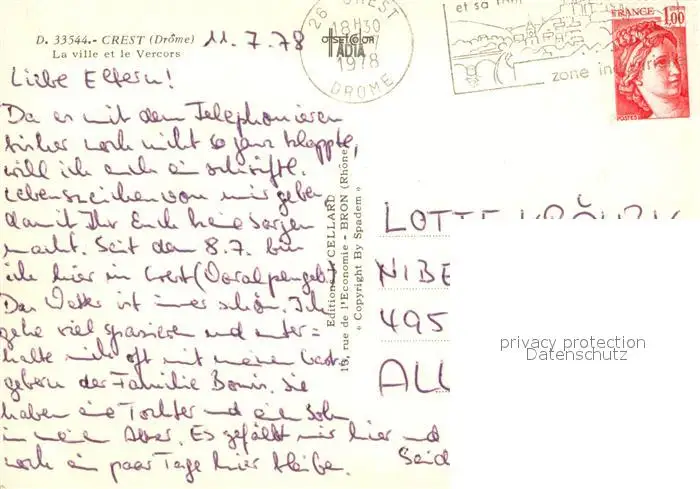 D. 33544.- CREST (Drôme)
La ville et le Vercors
11.7.78
26 CREST
18H30
1978
DROME
OFFSETCOLOR
ADIA
et sa
zone in
FRANCE 1,00
POSTES
Liebe Eltern!
Da es mit dem Telephonieren
bisher noch nicht so ganz klappte,
will ich euch ein schriftl.
Lebenszeichen von mir geben
damit Ihr Euch keine Sorgen
macht. Seit dem 8.7. bin
ich hier in Crest (Voralpengeb.)
Das Wetter ist immer schön. Ich
gehe viel spazieren und unter=
halte mich oft mit meinen Gast-
gebern der Familie Bonis. Sie
haben eine Tochter und ein Sohn
in mein Alter. Es gefällt mir hier und
noch ein paar Tage hier bleiben. Seid
Editions J. CELLARD
15, rue de l'Economie - BRON (Rhône)
« Copyright By Spadem »
LOTTE
NIBE
495
ALL
privacy protection
Datenschutz